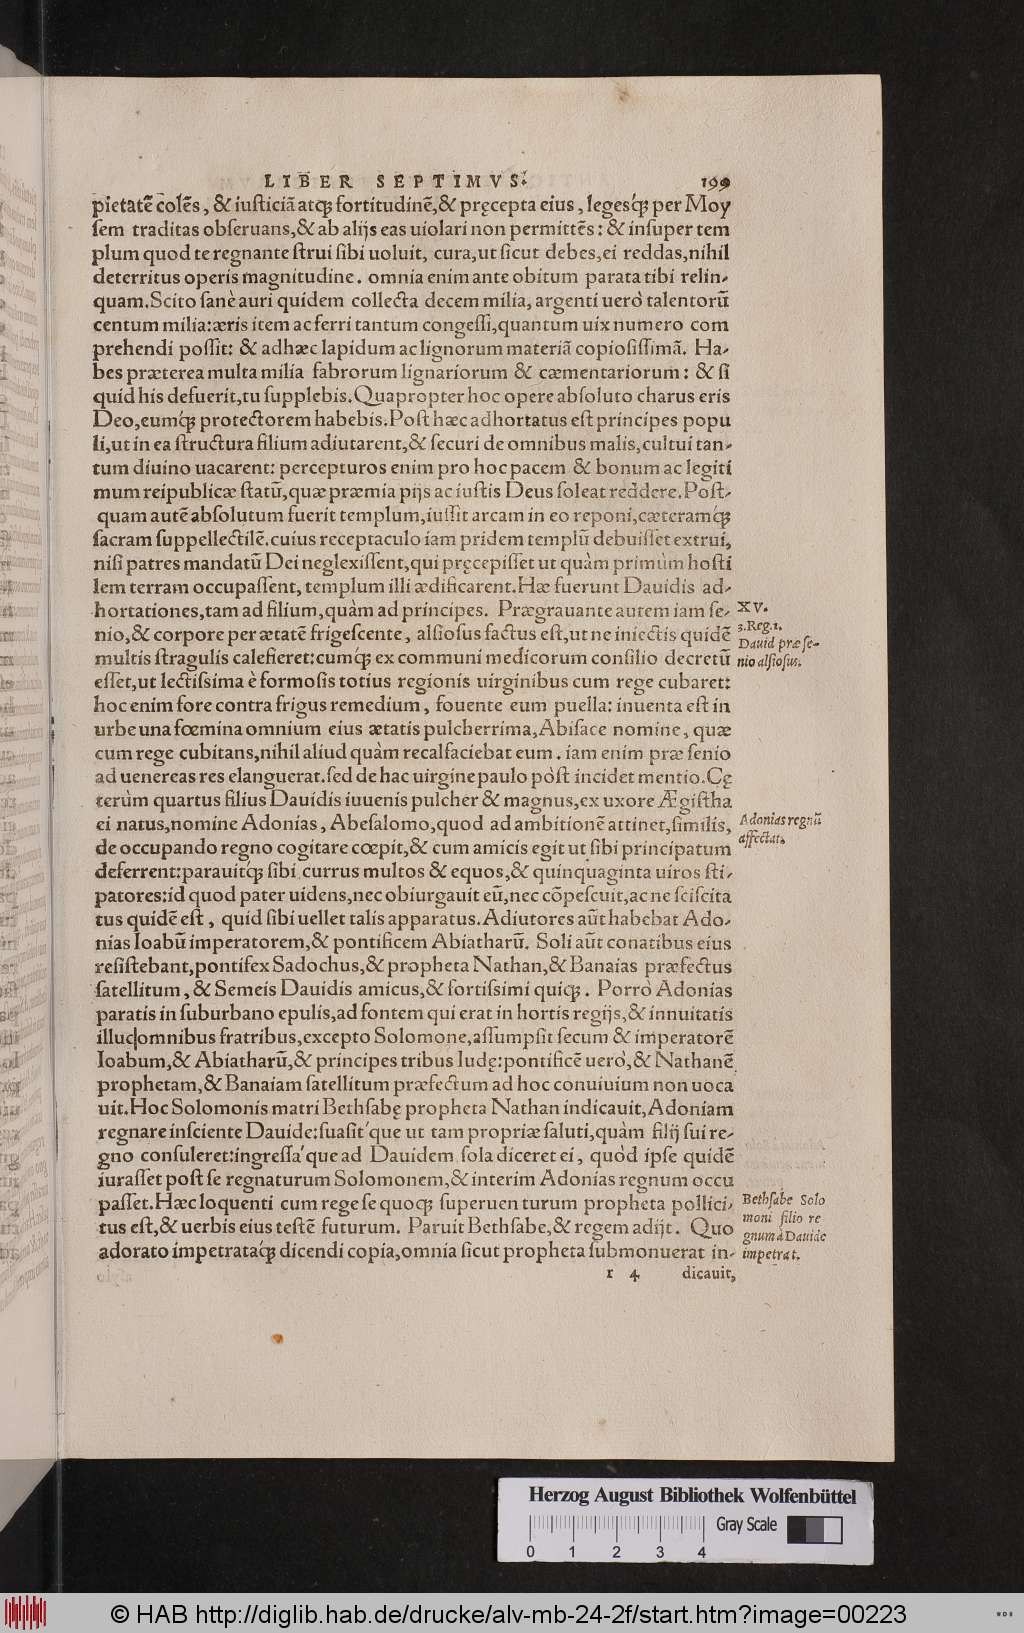 LIBER SEPTIMVS. 199
pietatē colēs, & iusticiā atq; fortitudinē, & pręcepta eius, leges'q; per Moy
sem traditas obseruans, & ab alijs eas uiolari non permittēs: & insuper tem
plum quod te regnante strui sibi uoluit, cura, ut sicut debes, ei reddas, nihil
deterritus operis magnitudine. omnia enim ante obitum parata tibi relin-
quam. Scito sanè auri quidem collecta decem milia, argenti uerò talentorū
centum milia: æris item ac ferri tantum congessi, quantum uix numero com
prehendi possit: & adhæc lapidum ac lignorum materiā copiosissimā. Ha-
bes præterea multa milia fabrorum lignariorum & cæmentariorum: & si
quid his defuerit, tu supplebis. Quapropter hoc opere absoluto charus eris
Deo, eum'q; protectorem habebis. Post hæc adhortatus est principes popu
li, ut in ea structura filium adiutarent, & securi de omnibus malis, cultui tan-
tum diuino uacarent: percepturos enim pro hoc pacem & bonum ac legiti
mum reipublicæ statū, quæ præmia pijs ac iustis Deus soleat reddere. Post-
quam autē absolutum fuerit templum, iussit arcam in eo reponi, cæteram'q;
sacram suppellectilē. cuius receptaculo iam pridem templū debuisset extrui,
nisi patres mandatū Dei neglexissent, qui pręcepisset ut quàm primùm hosti
lem terram occupassent, templum illi ædificarent. Hæ fuerunt Dauidis ad-
hortationes, tam ad filium, quàm ad principes. Prægrauante autem iam se-
XV.
3. Reg. 1.
Dauid præ se-
nio alsiosus.
nio, & corpore per ætatē frigescente, alsiosus factus est, ut ne iniectis quidē
multis stragulis calefieret: cum'q; ex communi medicorum consilio decretū
esset, ut lectissima è formosis totius regionis uirginibus cum rege cubaret:
hoc enim fore contra frigus remedium, fouente eum puella: inuenta est in
urbe una fœmina omnium eius ætatis pulcherrima, Abisace nomine, quæ
cum rege cubitans, nihil aliud quàm recalfaciebat eum. iam enim præ senio
ad uenereas res elanguerat. sed de hac uirgine paulo pòst incidet mentio. Cę
terùm quartus filius Dauidis iuuenis pulcher & magnus, ex uxore Ægistha
Adonias regnū
affectat.
ei natus, nomine Adonias, Abesalomo, quod ad ambitionē attinet, similis,
de occupando regno cogitare cœpit, & cum amicis egit ut sibi principatum
deferrent: parauit'q; sibi currus multos & equos, & quinquaginta uiros sti-
patores: id quod pater uidens, nec obiurgauit eū, nec cōpescuit, ac ne sciscita
tus quidē est, quid sibi uellet talis apparatus. Adiutores aūt habebat Ado-
nias Ioabū imperatorem, & pontificem Abiatharū. Soli aūt conatibus eius
resistebant, pontifex Sadochus, & propheta Nathan, & Banaias præfectus
satellitum, & Semeis Dauidis amicus, & fortissimi quiq;. Porrò Adonias
paratis in suburbano epulis, ad fontem qui erat in hortis regijs, & innuitatis
illuc omnibus fratribus, excepto Solomone, assumpsit secum & imperatorē
Ioabum, & Abiatharū, & principes tribus Iudę: pontificē uerò, & Nathanē
prophetam, & Banaiam satellitum præfectum ad hoc conuiuium non uoca
uit. Hoc Solomonis matri Bethsabę propheta Nathan indicauit, Adoniam
regnare insciente Dauide: suasit'que ut tam propriæ saluti, quàm filij sui re-
gno consuleret: ingressa'que ad Dauidem sola diceret ei, quòd ipse quidē
iurasset post se regnaturum Solomonem, & interim Adonias regnum occu
passet. Hæc loquenti cum rege se quoq; superuenturum propheta pollici-
Bethsabe Solo
moni filio re
gnum à Dauide
impetrat.
tus est, & uerbis eius testē futurum. Paruit Bethsabe, & regem adijt. Quo
adorato impetrata'q; dicendi copia, omnia sicut propheta submonuerat in-
r 4 dicauit,
Herzog August Bibliothek Wolfenbüttel
Gray Scale
0 1 2 3 4
© HAB http://diglib.hab.de/drucke/alv-mb-24-2f/start.htm?image=00223